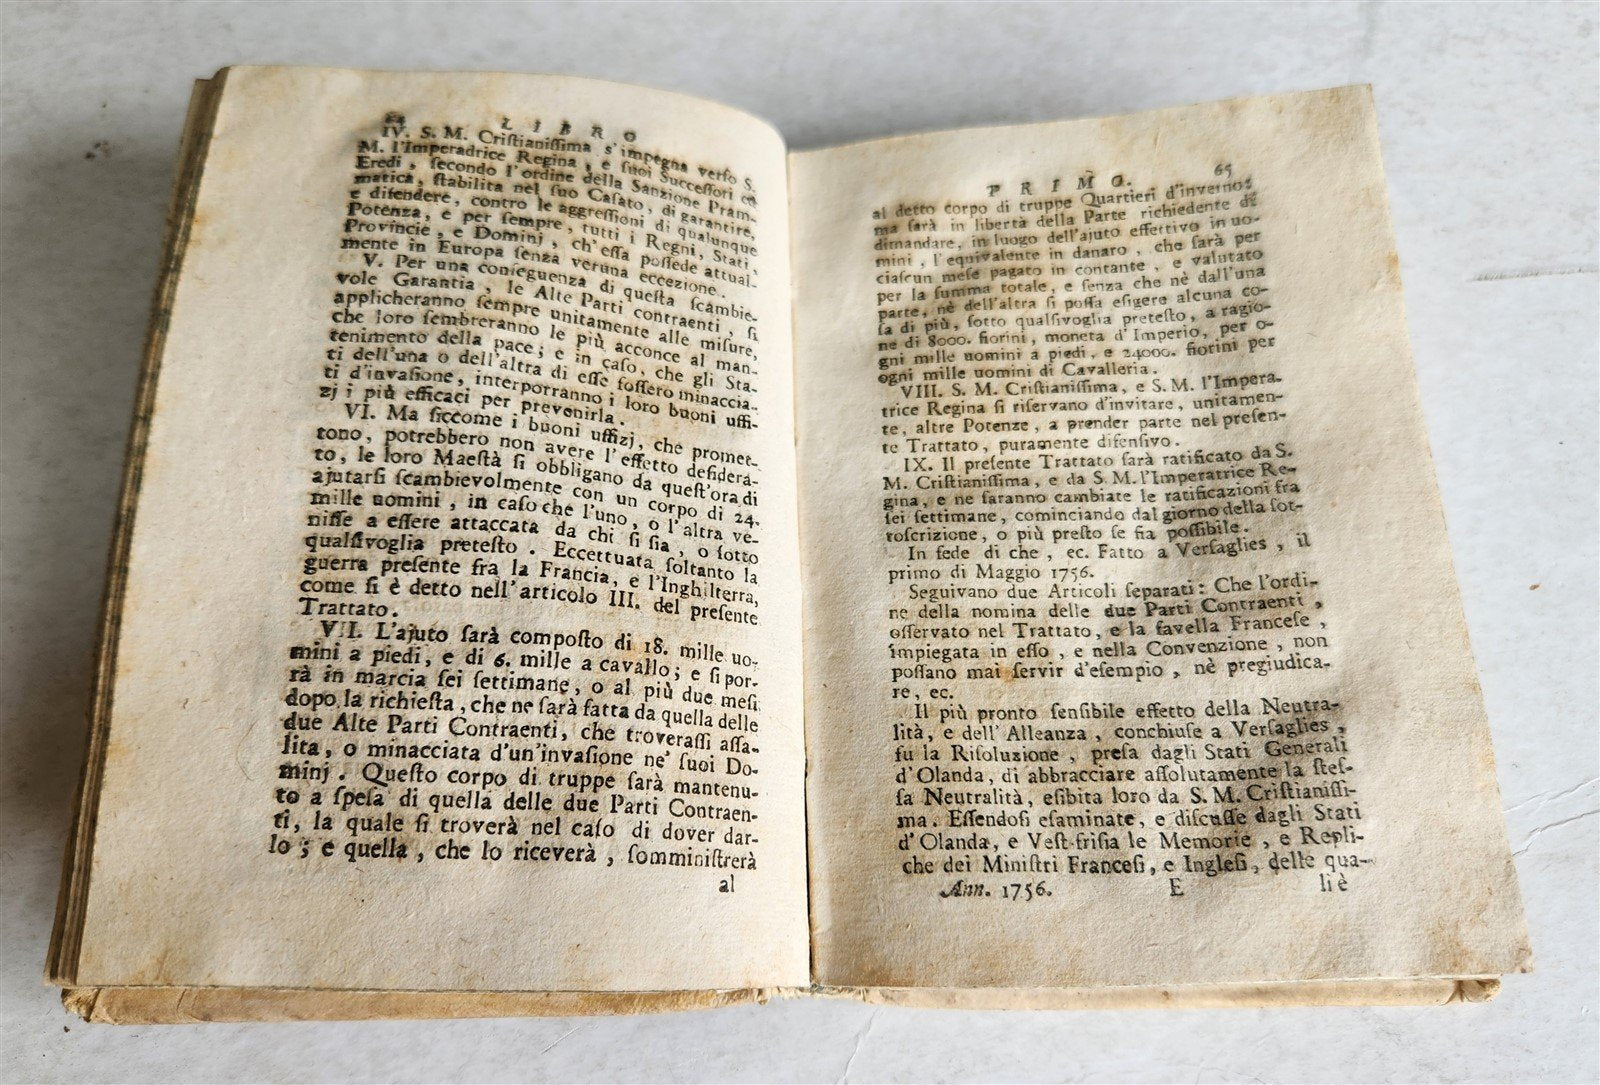 64 LIBRO
IV. S. M. Criſtianiſſima s'impegna verſo S.
M. l'Imperadrice Regina, e ſuoi Succeſſori ed
Eredi, ſecondo l'ordine della Sanzione Pram-
matica, ſtabilita nel ſuo Caſato, di garantire,
e difendere, contro le aggreſſioni di qualunque
Potenza, e per ſempre, tutti i Regni, Stati,
Provincie, e Dominj, ch'eſſa poſſede attual-
mente in Europa ſenza veruna eccezione.
V. Per una conſeguenza di queſta ſcambie-
vole Garantia, le Alte Parti contraenti, ſi
applicheranno ſempre unitamente alle miſure,
che loro ſembreranno le più acconce al man-
tenimento della pace; e in caſo, che gli Sta-
ti dell'una o dell'altra di eſſe foſſero minaccia-
ti d'invaſione, interporranno i loro buoni uffi-
zj i più efficaci per prevenirla.
VI. Ma ſiccome i buoni uffizj, che promet-
tono, potrebbero non avere l'effetto deſidera-
to, le loro Maeſtà ſi obbligano da queſt'ora di
ajutarſi ſcambievolmente con un corpo di 24.
mille uomini, in caſo che l'uno, o l'altra ve-
niſſe a eſſere attaccata da chi ſi ſia, o ſotto
qualſivoglia preteſto. Eccettuata ſoltanto la
guerra preſente fra la Francia, e l'Inghilterra,
come ſi è detto nell'articolo III. del preſente
Trattato.
VII. L'ajuto ſarà compoſto di 18. mille uo-
mini a piedi, e di 6. mille a cavallo; e ſi por-
rà in marcia ſei ſettimane, o al più due meſi
dopo la richieſta, che ne ſarà fatta da quella delle
due Alte Parti Contraenti, che troveraſſi aſſa-
lita, o minacciata d'un'invaſione ne' ſuoi Do-
minj. Queſto corpo di truppe ſarà mantenu-
to a ſpeſa di quella delle due Parti Contraen-
ti, la quale ſi troverà nel caſo di dover dar-
lo; e quella, che lo riceverà, ſomminiſtrerà
al
PRIMO. 65
al detto corpo di truppe Quartieri d'inverno:
ma ſarà in libertà della Parte richiedente di
dimandare, in luogo dell'ajuto effettivo in uo-
mini, l'equivalente in danaro, che ſarà per
ciaſcun meſe pagato in contante, e valutato
per la ſumma totale, e ſenza che nè dall'una
parte, nè dell'altra ſi poſſa eſigere alcuna co-
ſa di più, ſotto qualſivoglia preteſto, a ragio-
ne di 8000. fiorini, moneta d'Imperio, per o-
gni mille uomini a piedi, e 24000. fiorini per
ogni mille uomini di Cavalleria.
VIII. S. M. Criſtianiſſima, e S. M. l'Impera-
trice Regina ſi riſervano d'invitare, unitamen-
te, altre Potenze, a prender parte nel preſen-
te Trattato, puramente difenſivo.
IX. Il preſente Trattato ſarà ratificato da S.
M. Criſtianiſſima, e da S. M. l'Imperatrice Re-
gina, e ne ſaranno cambiate le ratificazioni fra
ſei ſettimane, cominciando dal giorno della ſot-
toſcrizione, o più preſto ſe ſia poſſibile.
In fede di che, ec. Fatto a Verſaglies, il
primo di Maggio 1756.
Seguivano due Articoli ſeparati: Che l'ordi-
ne della nomina delle due Parti Contraenti,
oſſervato nel Trattato, e la favella Franceſe,
impiegata in eſſo, e nella Convenzione, non
poſſano mai ſervir d'eſempio, nè pregiudica-
re, ec.
Il più pronto ſenſibile effetto della Neutra-
lità, e dell'Alleanza, conchiuſe a Verſaglies,
fu la Riſoluzione, preſa dagli Stati Generali
d'Olanda, di abbracciare aſſolutamente la ſteſ-
ſa Neutralità, eſibita loro da S. M. Criſtianiſſi-
ma. Eſſendoſi eſaminate, e diſcuſſe dagli Stati
d'Olanda, e Veſt-friſia le Memorie, e Repli-
che dei Miniſtri Franceſi, e Ingleſi, delle qua-
Ann. 1756. E li è